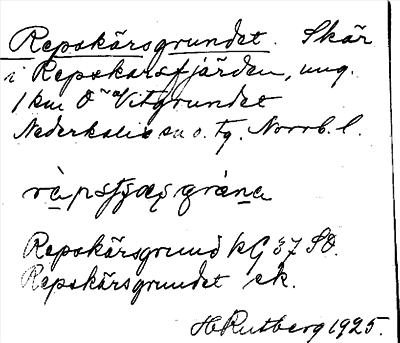 Repskärsgrundet. Skär
i Repskärsfjärden, ung.
1 km O Vitgrundet
Nederkalix sn o. tg. Norrb. l.
Repskärsgrund kG 37 SO.
Repskärsgrundet ek.
H Rutberg 1925.